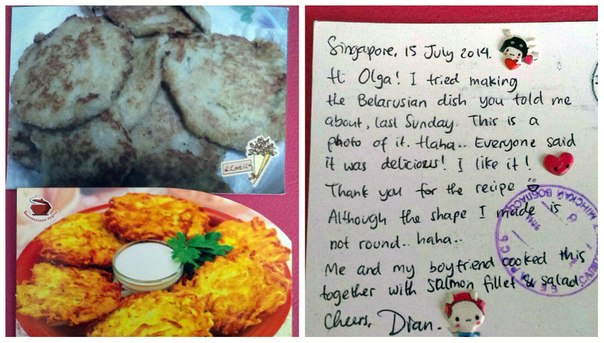 Singapore, 15 July 2014.
Hi Olga! I tried making
the Belarusian dish you told me
about, last Sunday. This is a
photo of it. Haha.. Everyone said
it was delicious! I like it!
Thank you for the recipe
Although the shape I made is
not round.. haha..
Me and my boyfriend cooked this
together with salmon fillet & salad
Cheers, Dian.